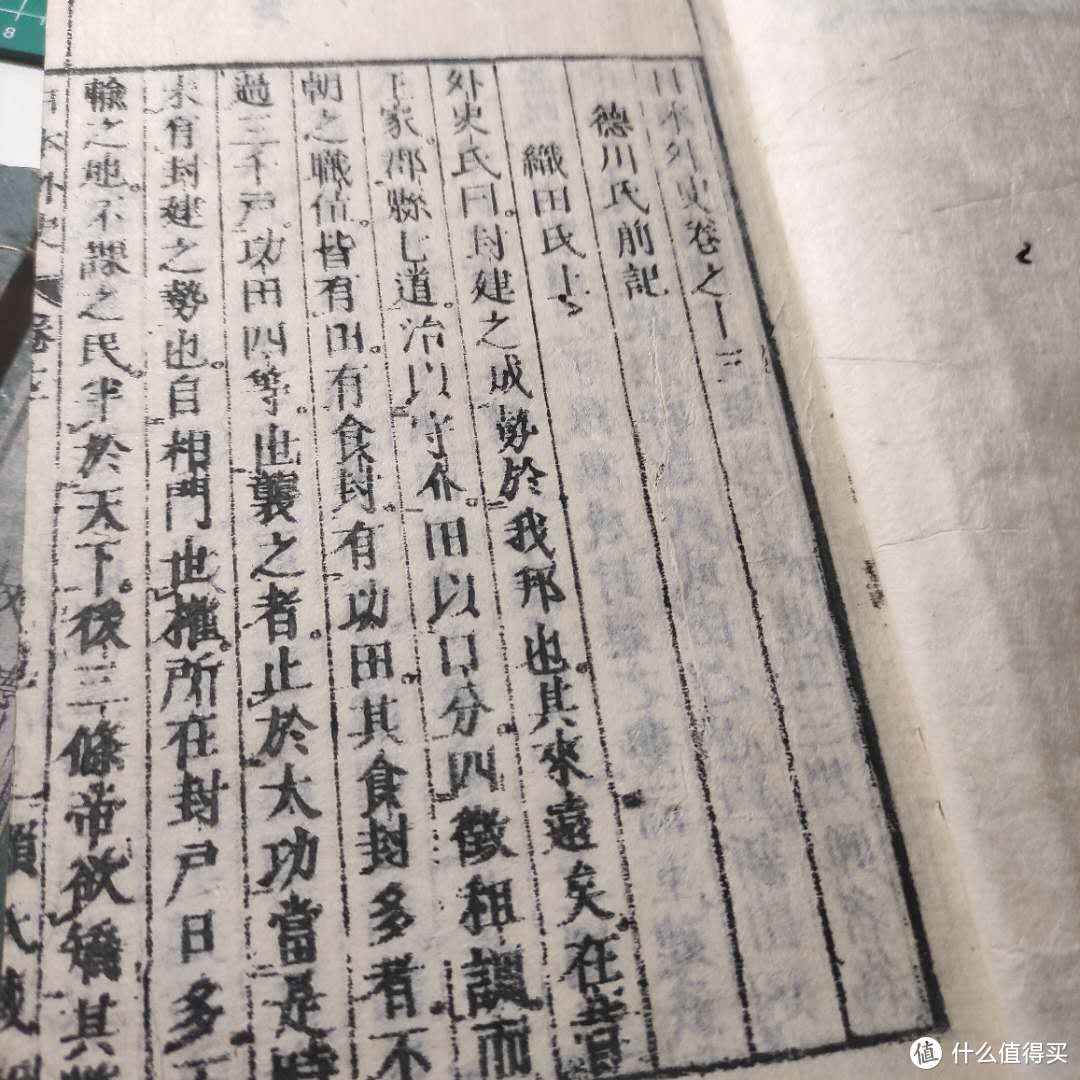 日本外史卷之十三
德川氏前記
織田氏上
外史氏曰。封建之成勢於我邦也。其來遠矣。在昔
王家。郡縣七道。治以守介。田以口分。四徵租調而
朝之職位。皆有田。有食封。有功田。其食封多者不
過三千戶。功田四等。世襲之者。止於太功。當是時
未有封建之勢也。自相門世權。所在封戶日多
輸之地。不課之民。半於天下。後三條帝欲矯其弊
日本外史 卷十三 賴氏藏
8
值 什么值得买